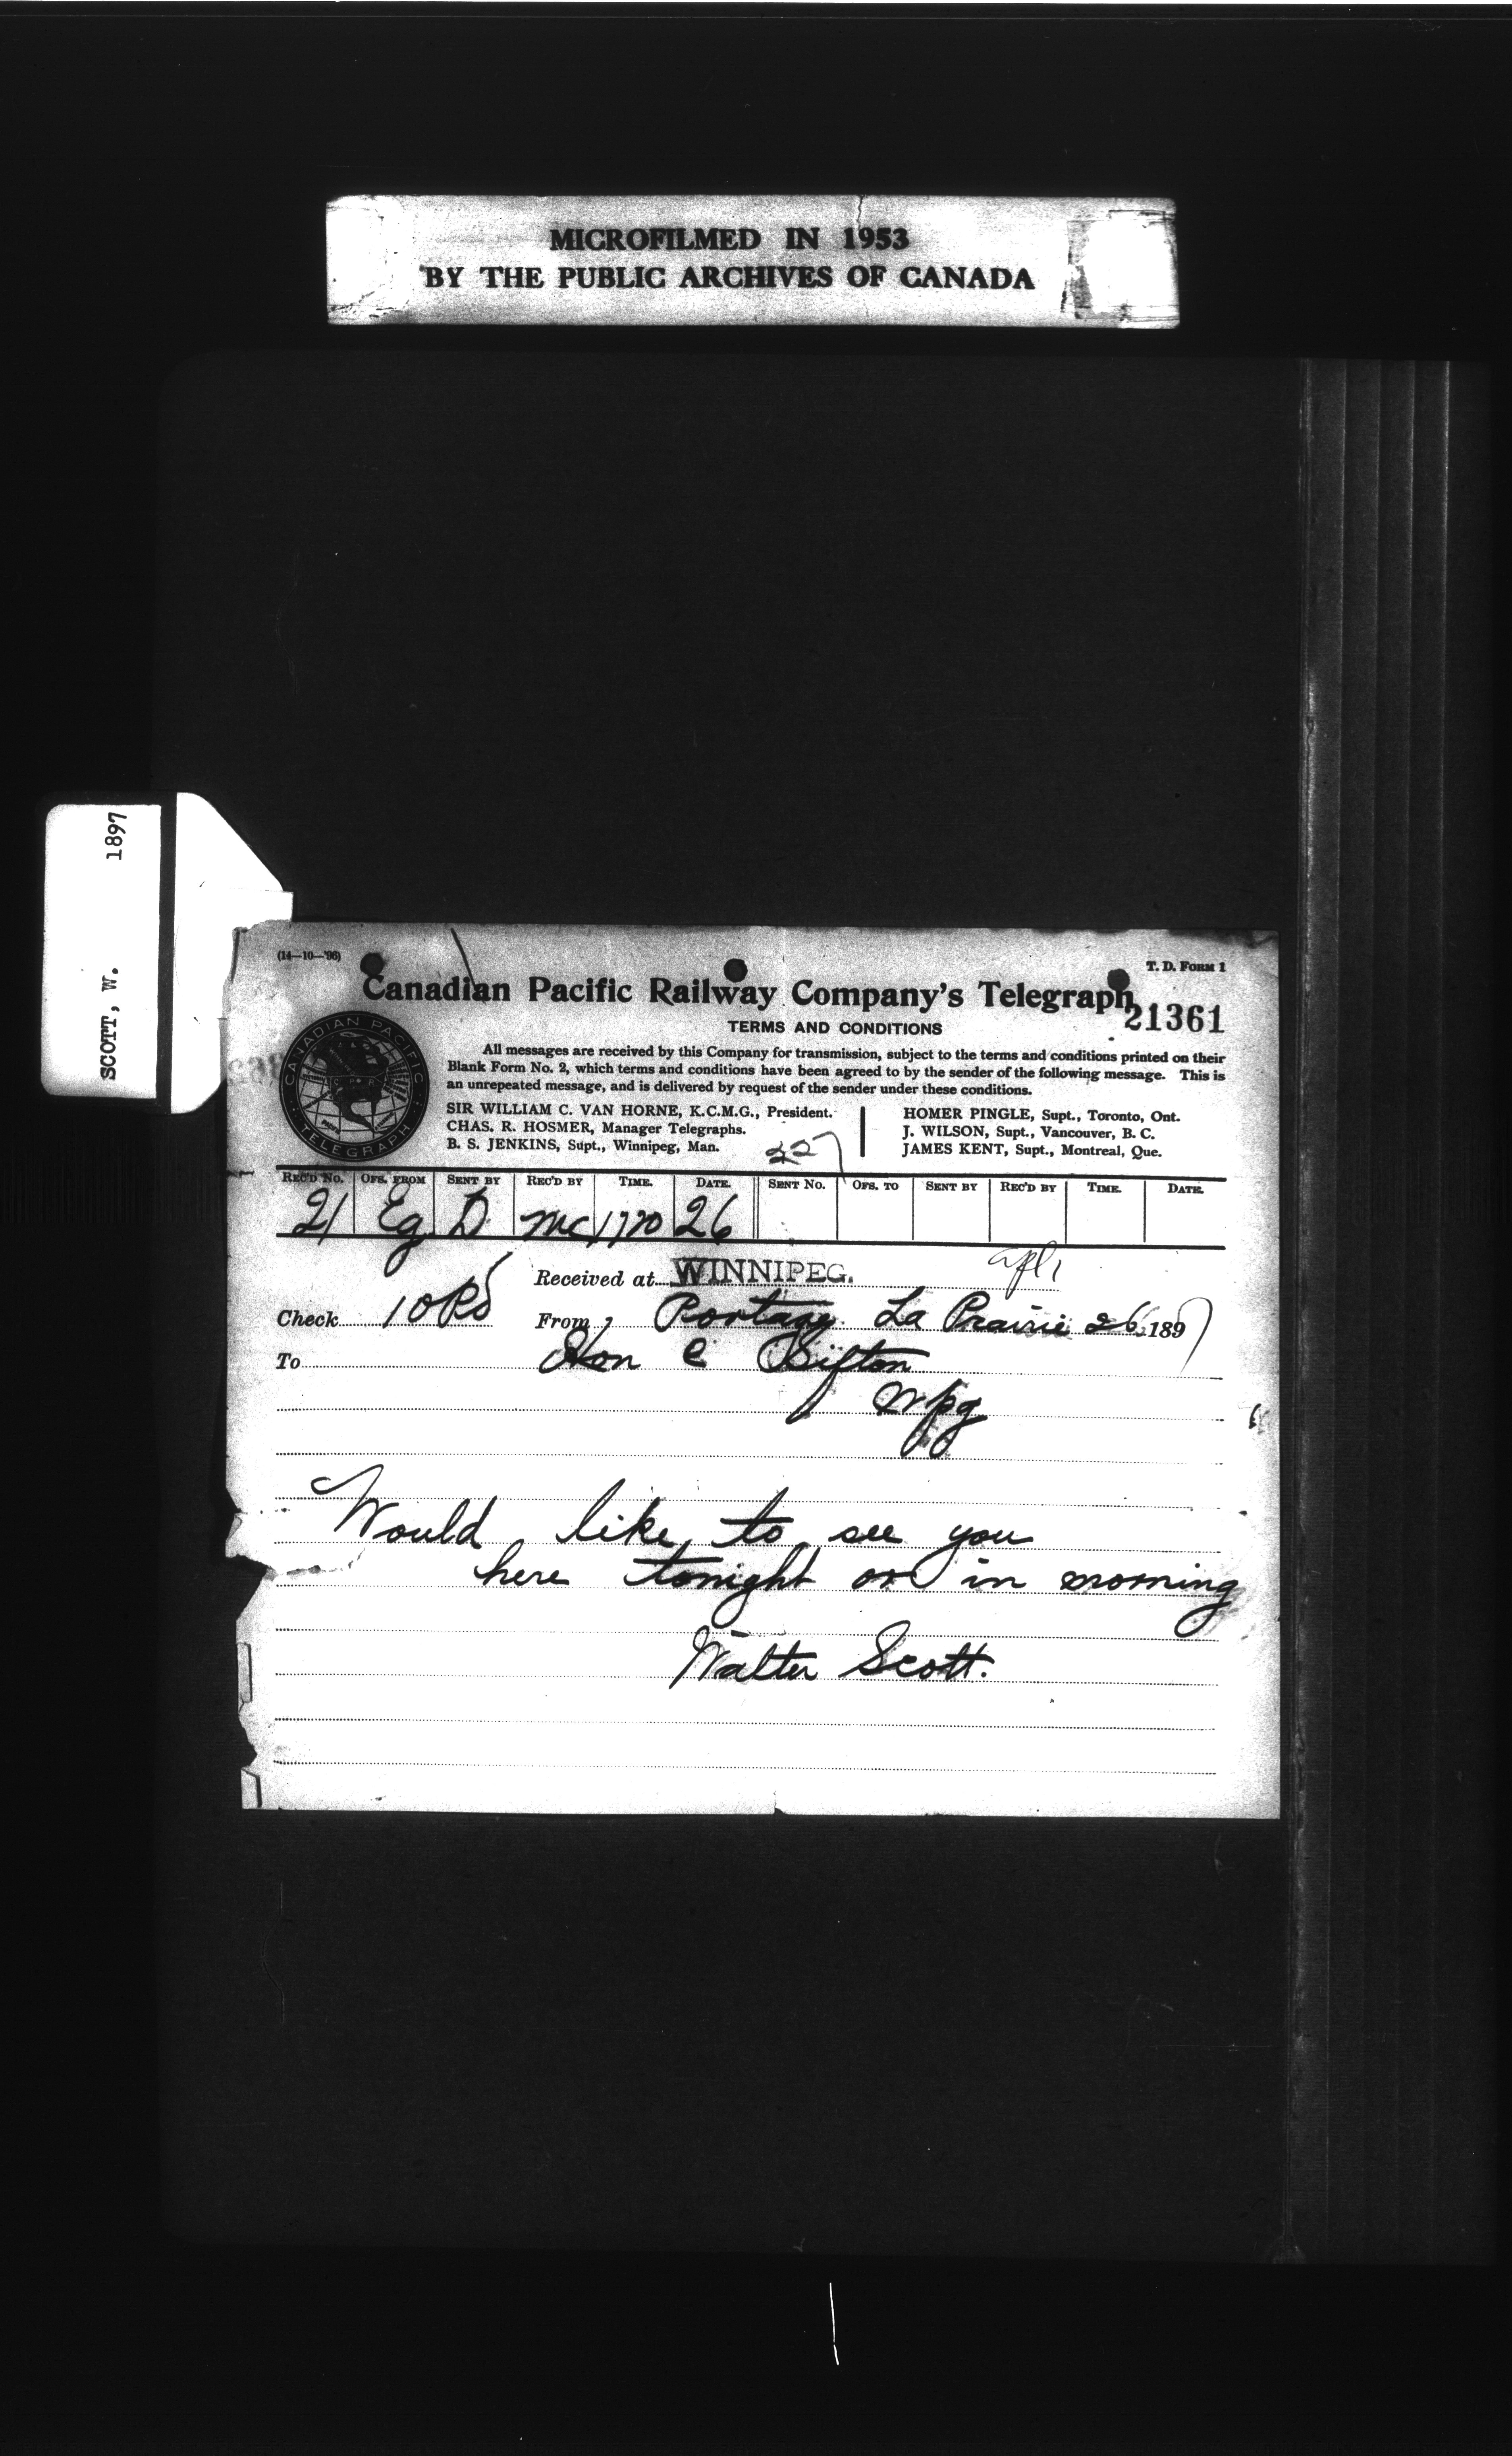 MICROFILMED IN 1953
BY THE PUBLIC ARCHIVES OF CANADA
SCOTT, W. 1897
(14—10—'96)
T. D. FORM 1
Canadian Pacific Railway Company's Telegraph
21361
TERMS AND CONDITIONS
All messages are received by this Company for transmission, subject to the terms and conditions printed on their
Blank Form No. 2, which terms and conditions have been agreed to by the sender of the following message. This is
an unrepeated message, and is delivered by request of the sender under these conditions.
SIR WILLIAM C. VAN HORNE, K.C.M.G., President.
CHAS. R. HOSMER, Manager Telegraphs.
B. S. JENKINS, Supt., Winnipeg, Man.
HOMER PINGLE, Supt., Toronto, Ont.
J. WILSON, Supt., Vancouver, B. C.
JAMES KENT, Supt., Montreal, Que.
CANADIAN PACIFIC
C.P.R.
TELEGRAPH
REC'D NO. OFS. FROM SENT BY REC'D BY TIME. DATE. SENT NO. OFS. TO SENT BY REC'D BY TIME. DATE.
21 Eg D Mc 1720 26
Received at WINNIPEG.
Check 10 Pd From Portage La Prairie 26 1897
To Hon C Sifton
Wpg
Would like to see you
here tonight or in morning
Walter Scott.